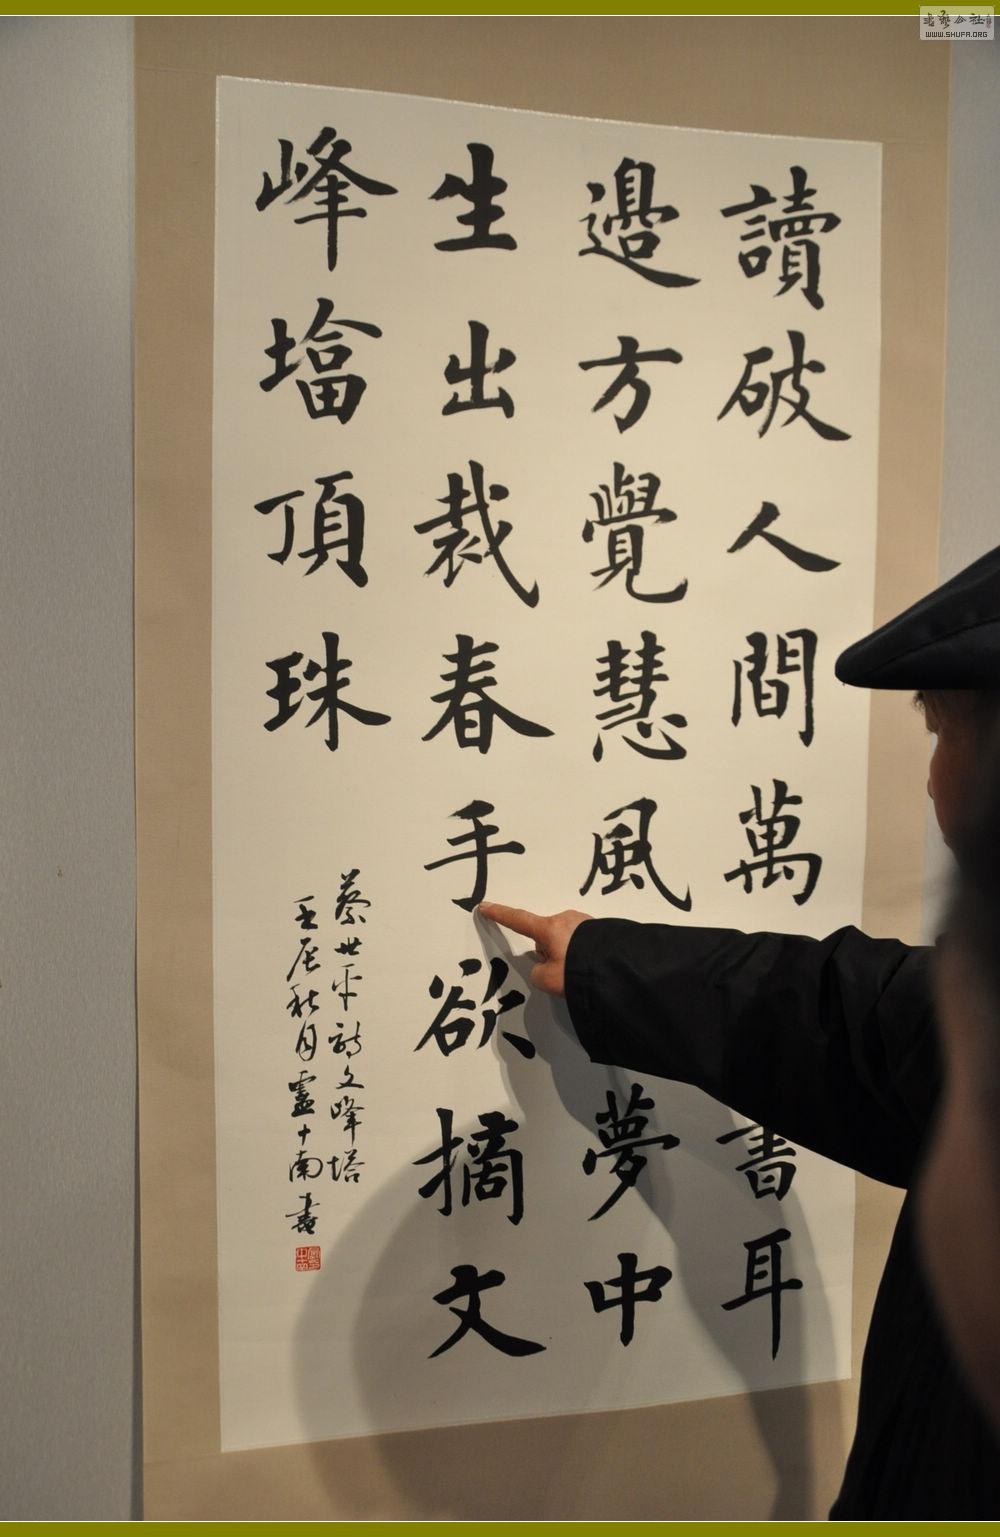 讀破人間萬書耳
邊方覺慧風夢中
生出裁春手欲摘文
峰墖頂珠
蔡世平詩文峰塔
壬辰秋月盧中南書
书艺公社
WWW.SHUFA.ORG